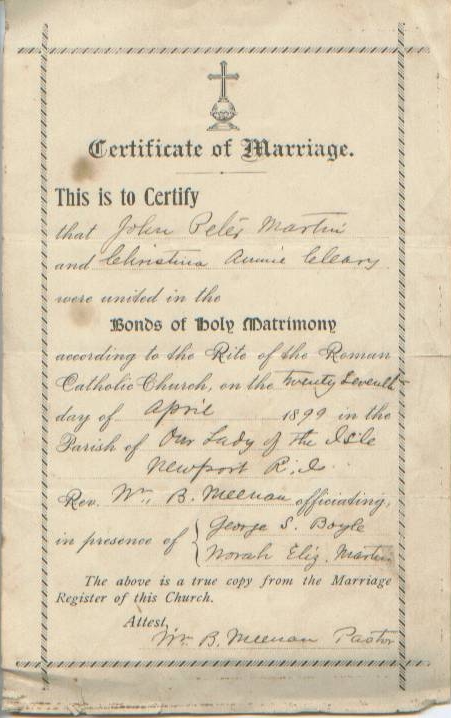 Certificate of Marriage.
This is to Certify
that John Peter Martin
and Christina Annie Cleary
were united in the
Bonds of Holy Matrimony
according to the Rite of the Roman
Catholic Church, on the Twenty Seventh
day of April 1899 in the
Parish of Our Lady of the Isle
Newport R.I.
Rev. Wm. B. Meenan officiating,
in presence of { George S. Boyle
Norah Eliz. Martin
The above is a true copy from the Marriage
Register of this Church.
Attest,
Wm B. Meenan Pastor